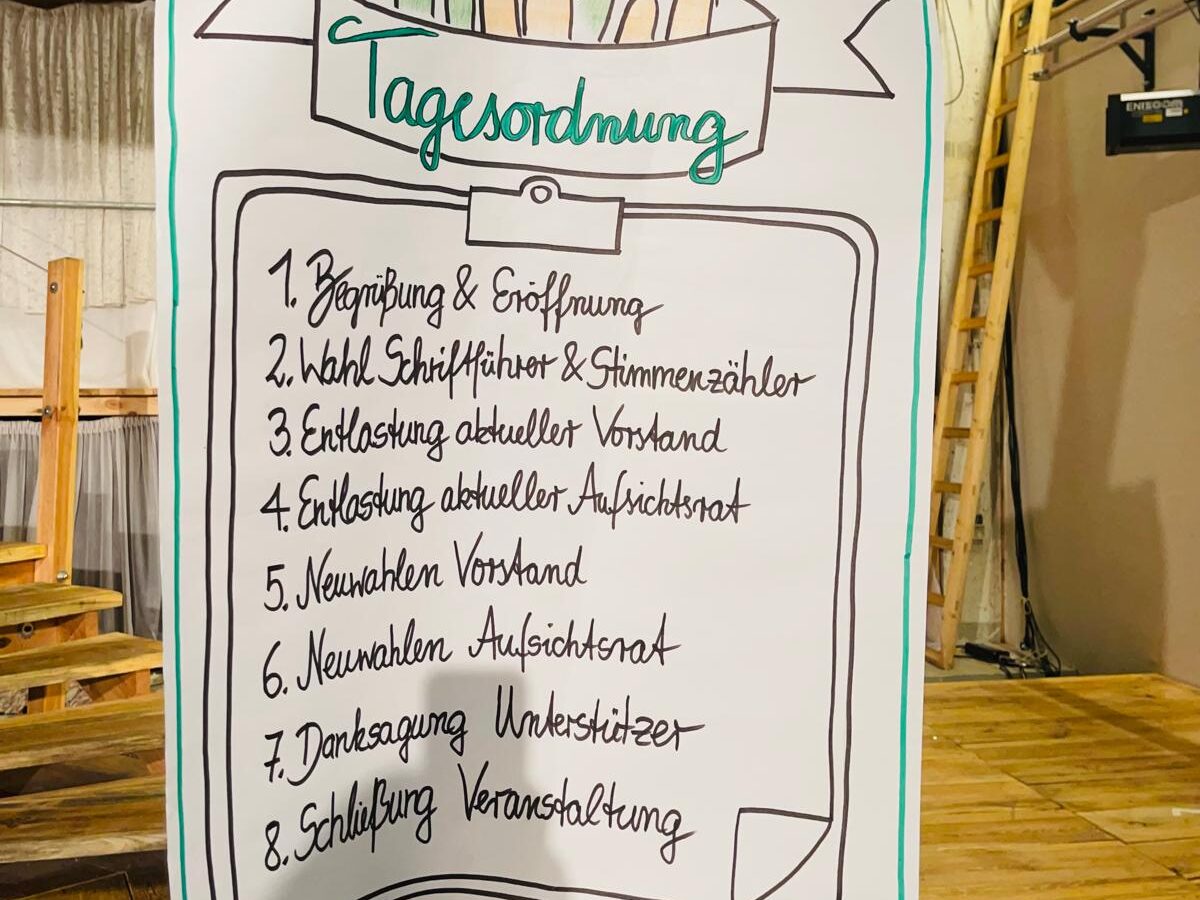 Tagesordnung
1. Begrüßung & Eröffnung
2. Wahl Schriftführer & Stimmenzähler
3. Entlastung aktueller Vorstand
4. Entlastung aktueller Aufsichtsrat
5. Neuwahlen Vorstand
6. Neuwahlen Aufsichtsrat
7. Danksagung Unterstützer
8. Schließung Veranstaltung